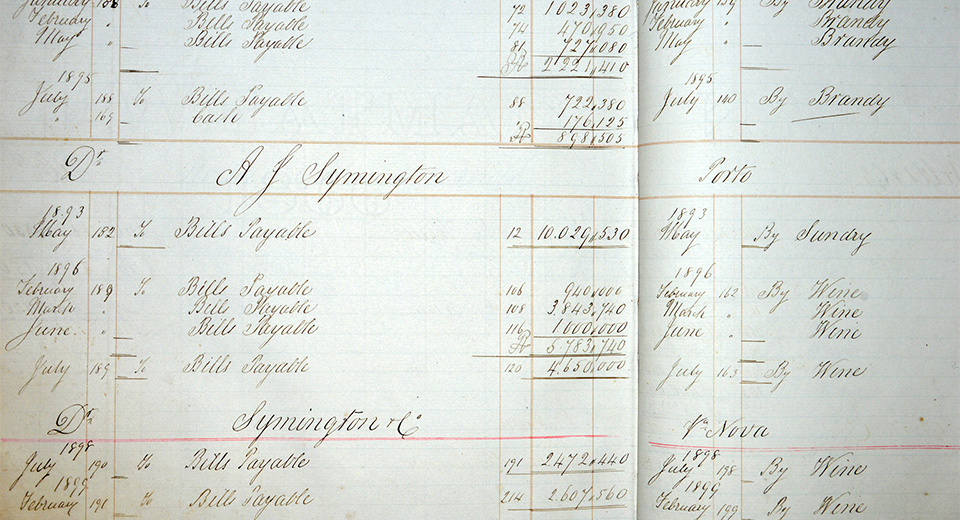 January 188 To Bills Payable 72 1.023,380 January 139 By Brandy
February " Bills Payable 74 470,950 February " Brandy
May " Bills Payable 81 727,080 May " Brandy
2.221,410
1895 1895
July 188 To Bills Payable 88 722,380 July 140 By Brandy
" 169 Cash " 176,125
898,505
Dr. A J Symington Porto
1893 1893
May 152 To Bills Payable 12 10.029,530 May By Sundry
1896 1896
February 189 To Bills Payable 106 940,000 February 162 By Wine
March " Bills Payable 108 3.843,740 March " Wine
June " Bills Payable 116 1000,000 June " Wine
5.783,740
July 189 To Bills Payable 120 4.650,000 July 163 By Wine
Dr. Symington & Co Va Nova
1898 1898
July 190 To Bills Payable 191 2.472,440 July 198 By Wine
1899 1899
February 191 To Bills Payable 214 2.607,560 February 199 By Wine